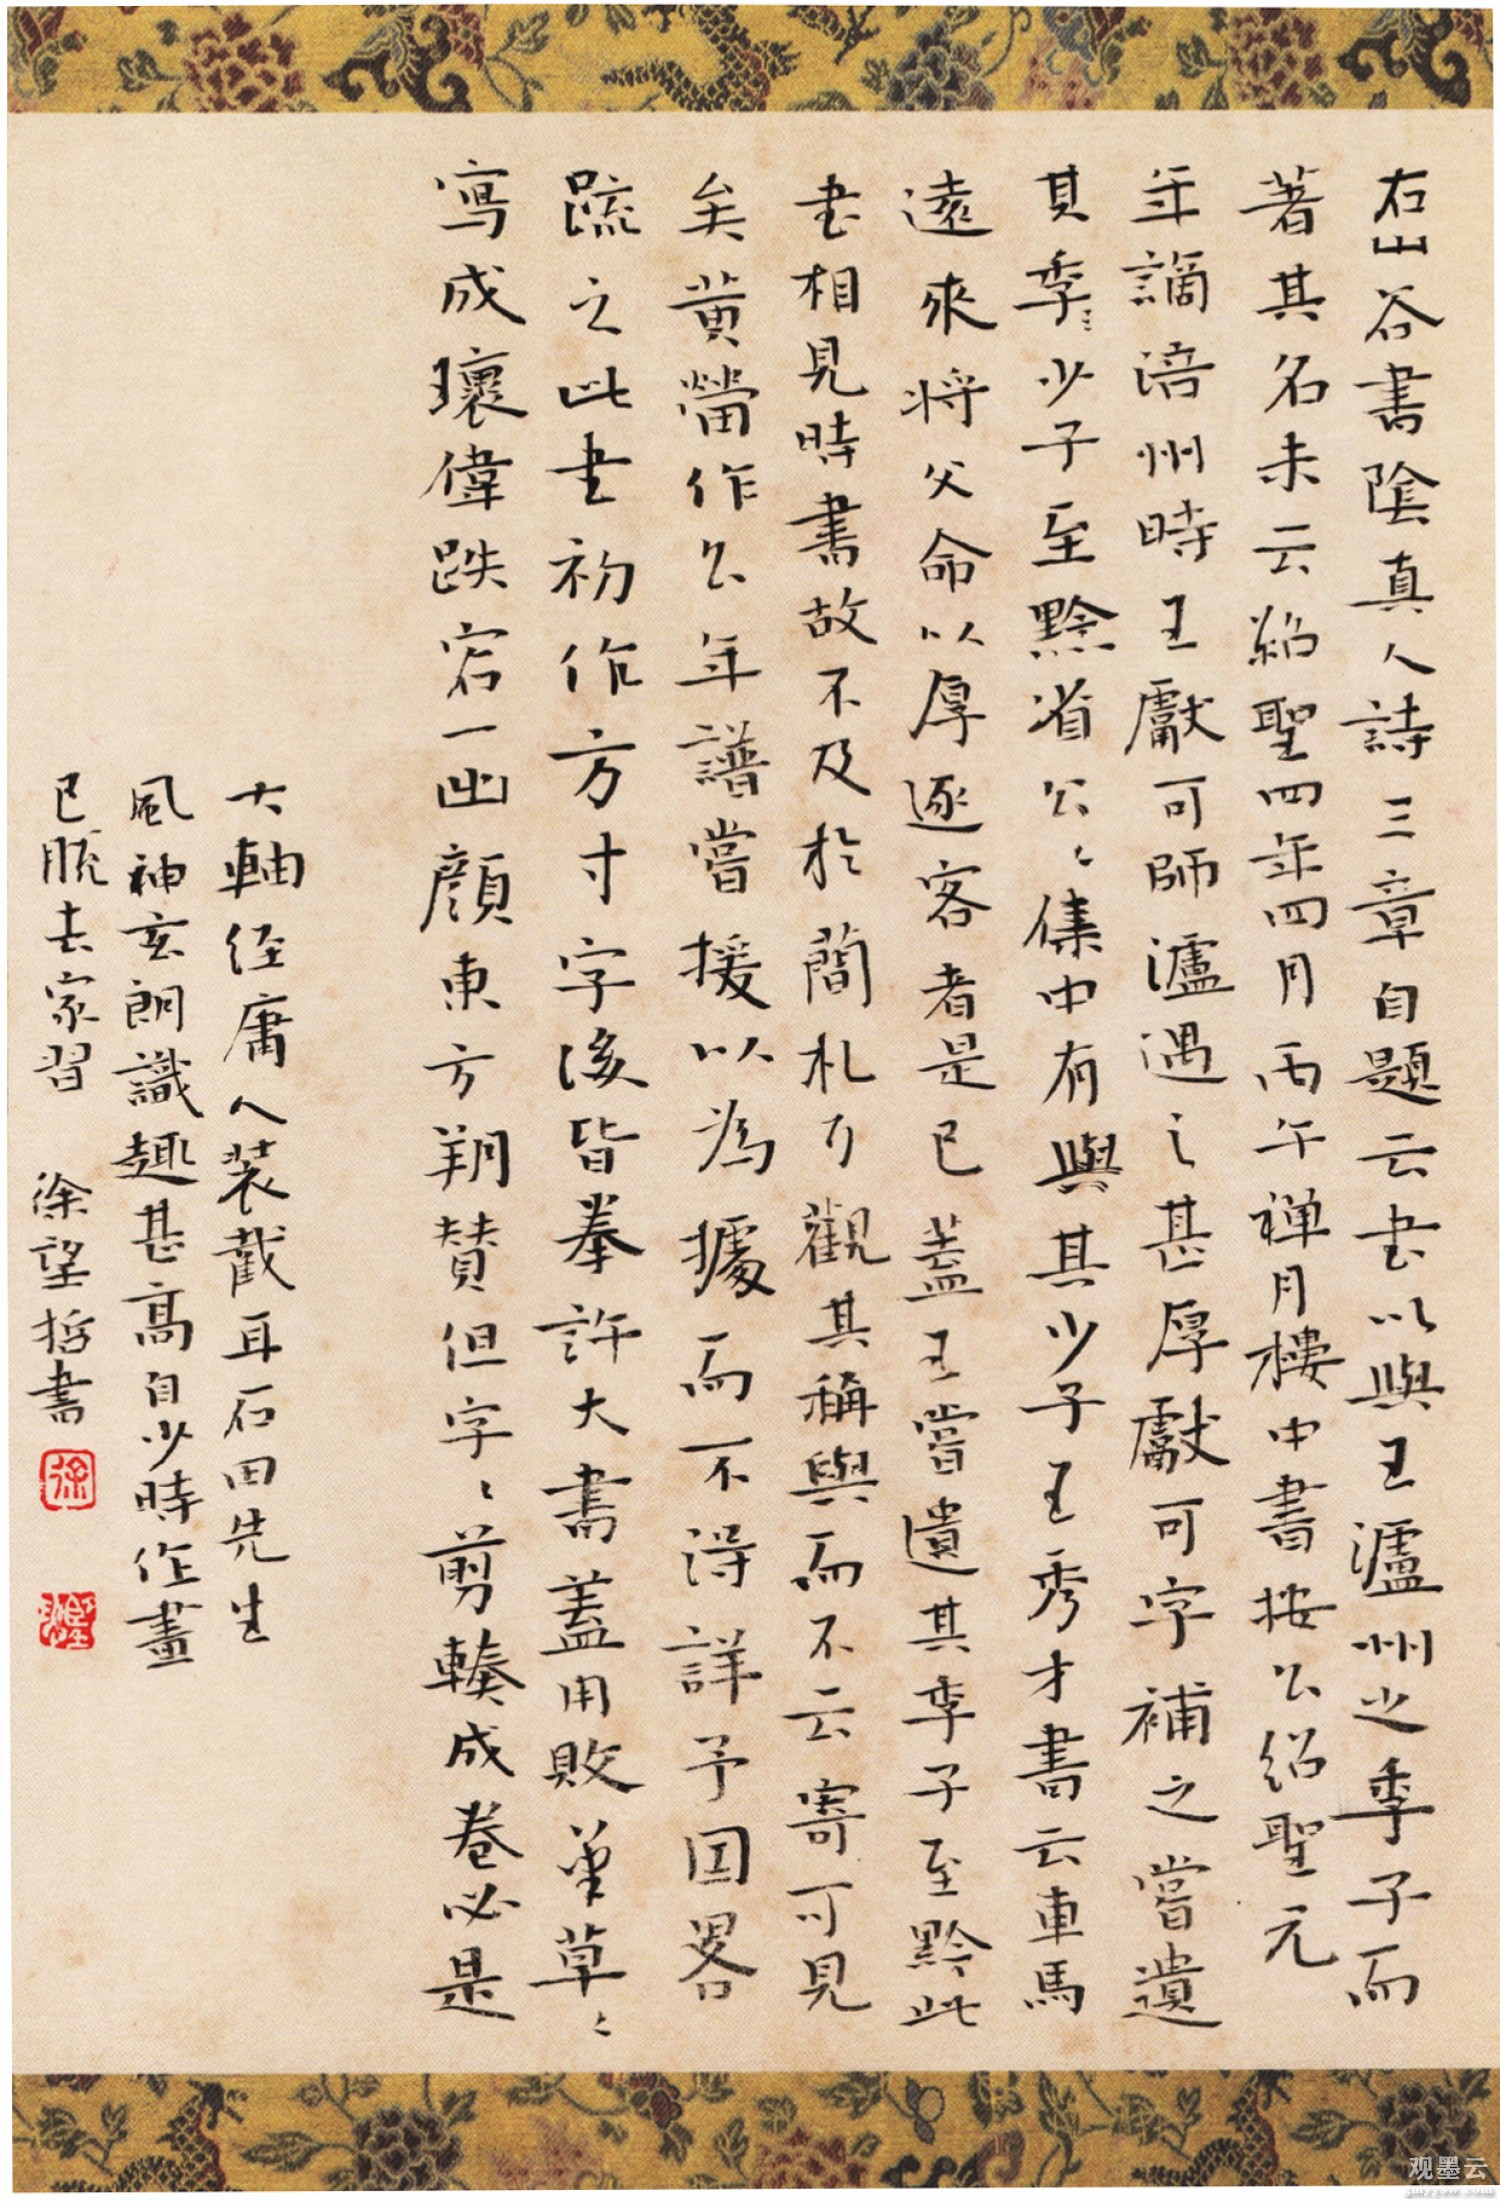 右山谷書陰真人詩三章自題云書以與王瀘州之季子而
著其名未云紹聖四年四月丙午禅月樓中書按公紹聖元
年謫涪州時王獻可師瀘遇之甚厚獻可字補之嘗遺
其季〻少子至黔省公〻集中有與其少子王秀才書云車馬
遠來将父命以厚逐客者是已蓋王嘗遺其季子至黔此
书相見時書故不及於簡札乃觀其稱與而不云寄可見
矣黄㽦作公年譜嘗援以為據而不得詳予因畧
疏之此書初作方寸字後皆拳許大書蓋用敗筆草〻
寫成瓌偉跌宕一出顔東方朔賛但字〻剪輳成卷必是
大軸经庸人装截耳石田先生
風神玄朗識趣甚高自少時作畫
已脱去家習 徐望哲書
徐
观墨云